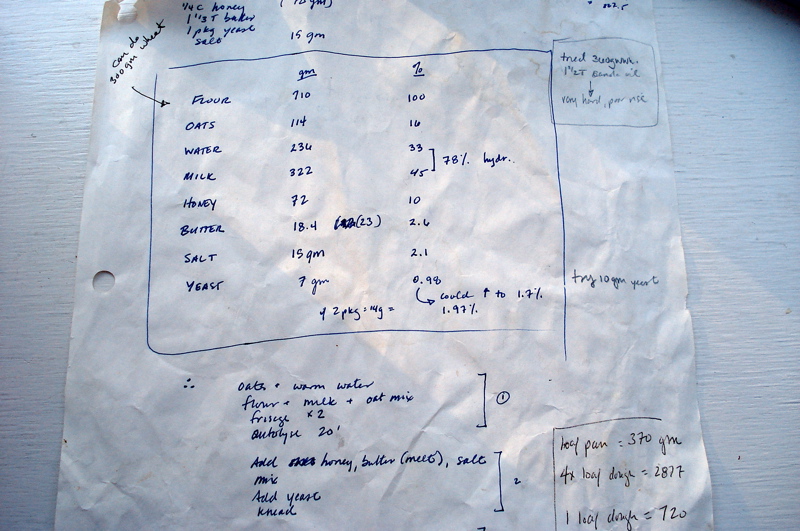 1/4 C honey
1 1/3 T butter
1 pkg yeast
salt 15 gm
can do
300 gm wheat
gm %
FLOUR 710 100
OATS 114 16
WATER 236 33
78% hydr.
MILK 322 45
HONEY 72 10
BUTTER 18.4 (23) 2.6
SALT 15 gm 2.1
YEAST 7 gm 0.98
could ↑ to 1.7%
if 2 pkg = 14g = 1.97%
tried 300gm
1 1/2 T
↓
very hard, poor rise
try 10 gm yeast
∴ oats + warm water
flour + milk + oat mix
frisage x2
autolyse 20'
1
Add honey, butter (melt), salt
mix
Add yeast
knead
2
loaf pan = 370 gm
4x loaf dough = 2877
1 loaf dough = 720